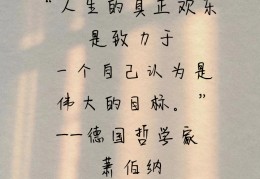 “人生的真正欢乐
是致力于
一个自己认为是
伟大的目标。”
——德国哲学家
萧伯纳